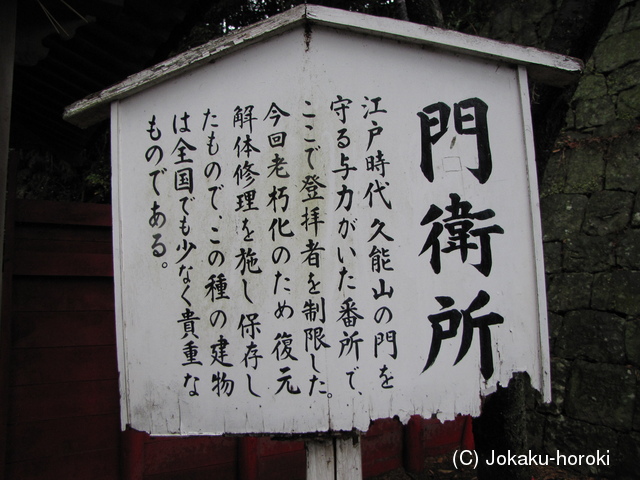 門衛所
江戸時代久能山の門を
守る与力がいた番所で、
ここで登拝者を制限した。
今回老朽化のため復元
解体修理を施し保存し
たもので、この種の建物
は全国でも少なく貴重な
ものである。
(C) Jokaku-horoki